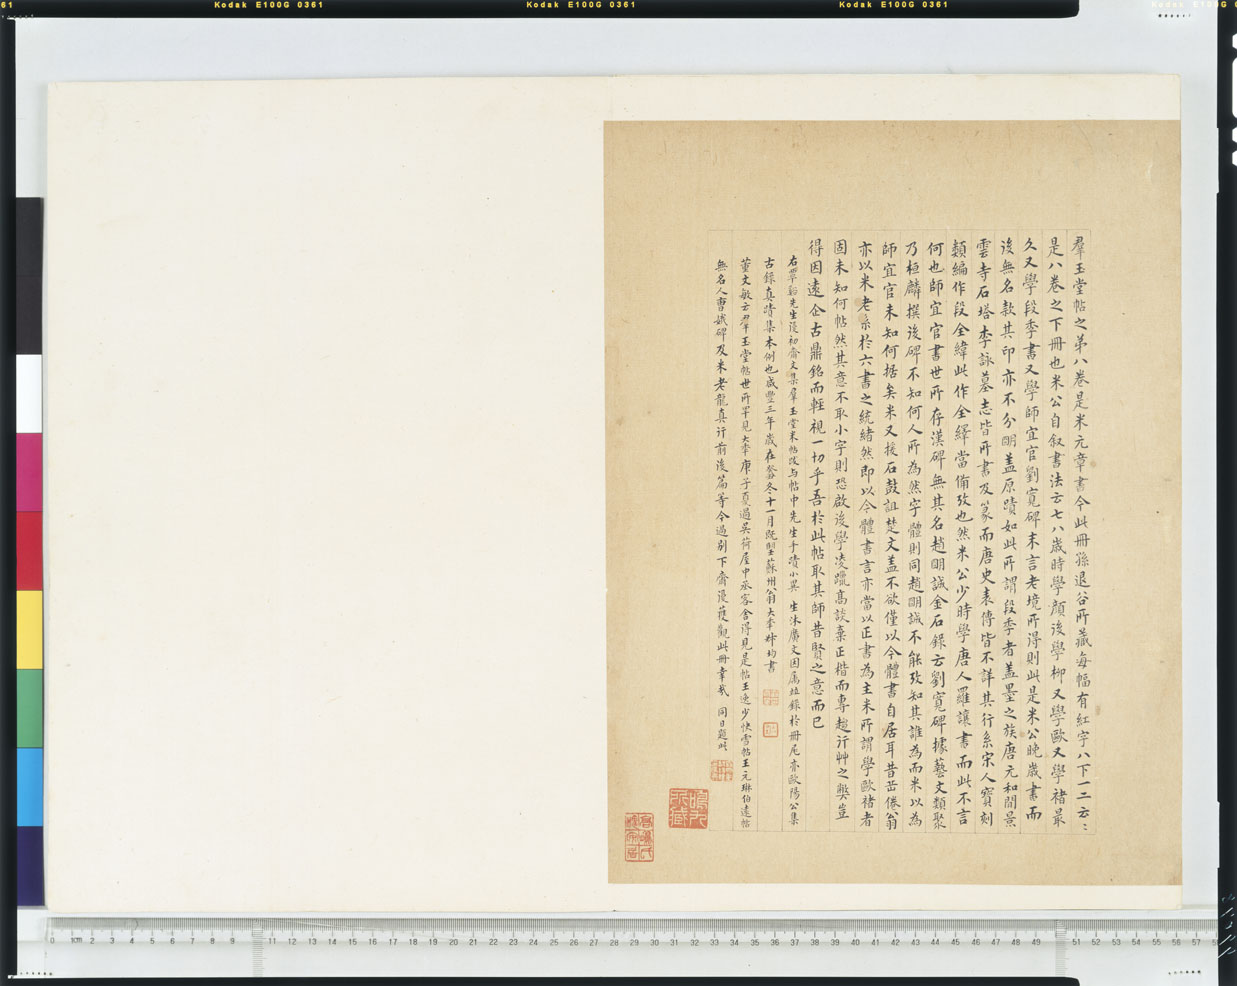 Kodak E100G 0361
Kodak E100G 0361
Kodak E100G 0361
羣玉堂帖之第八卷是米元章書今此冊孫退谷所藏每幅有紅字八下一二云〻
是八卷之下冊也米公自叙書法云七八歲時學顏後學柳又學歐又學褚最
久又學段季書又學師宜官劉寬碑末言老境所得則此是米公晚歲書而
後無名款其印亦不分朙蓋原蹟如此所謂段季者蓋墨之族唐元和間景
雲寺石塔李詠墓志皆所書及篆而唐史表傳皆不詳其行系宋人寳刻
類編作段全緯此作全繹當備攷也然米公少時學唐人羅讓書而此不言
何也師宜官書世所存漢碑無其名趙朙誠金石錄云劉寬碑據藝文類聚
乃桓麟撰後碑不知何人所為然字體則同趙朙誠不能攷知其誰為而米以為
師宜官未知何据矣米又援石鼓詛楚文蓋不欲僅以今體書自居耳昔岳倦翁
亦以米老系於六書之統緒然即以今體書言亦當以正書為主米所謂學歐褚者
固未知何帖然其意不取小字則恐啟後學凌躐高談棄正楷而專趨行艸之獘豈
得因遠企古鼎銘而輕視一切乎吾於此帖取其師昔賢之意而已
右覃谿先生復初齋文集羣玉堂米帖跋与帖中先生手蹟小異 生沐廣文因屬 錄於冊尾亦歐陽公集
古錄真蹟集本例也咸豐三年歲在 冬十一月既望蘇州翁大年 均書
董文敏云羣玉堂帖世所罕見大年庚子夏過吳荷屋中丞客舍得見是帖王逸少快雪帖王元琳伯遠帖
無名人曹娥碑及米老龍真行前後篇等今過別下齋復獲觀此冊幸哉 同日題此
0 1cm 2 3 4 5 6 7 8 9 11 12 13 14 15 16 17 18 19 20 21 22 23 24 25 26 27 28 29 30 31 32 33 34 35 36 37 38 39 40 41 42 43 44 45 46 47 48 49 51 52 53 54 55 56 57